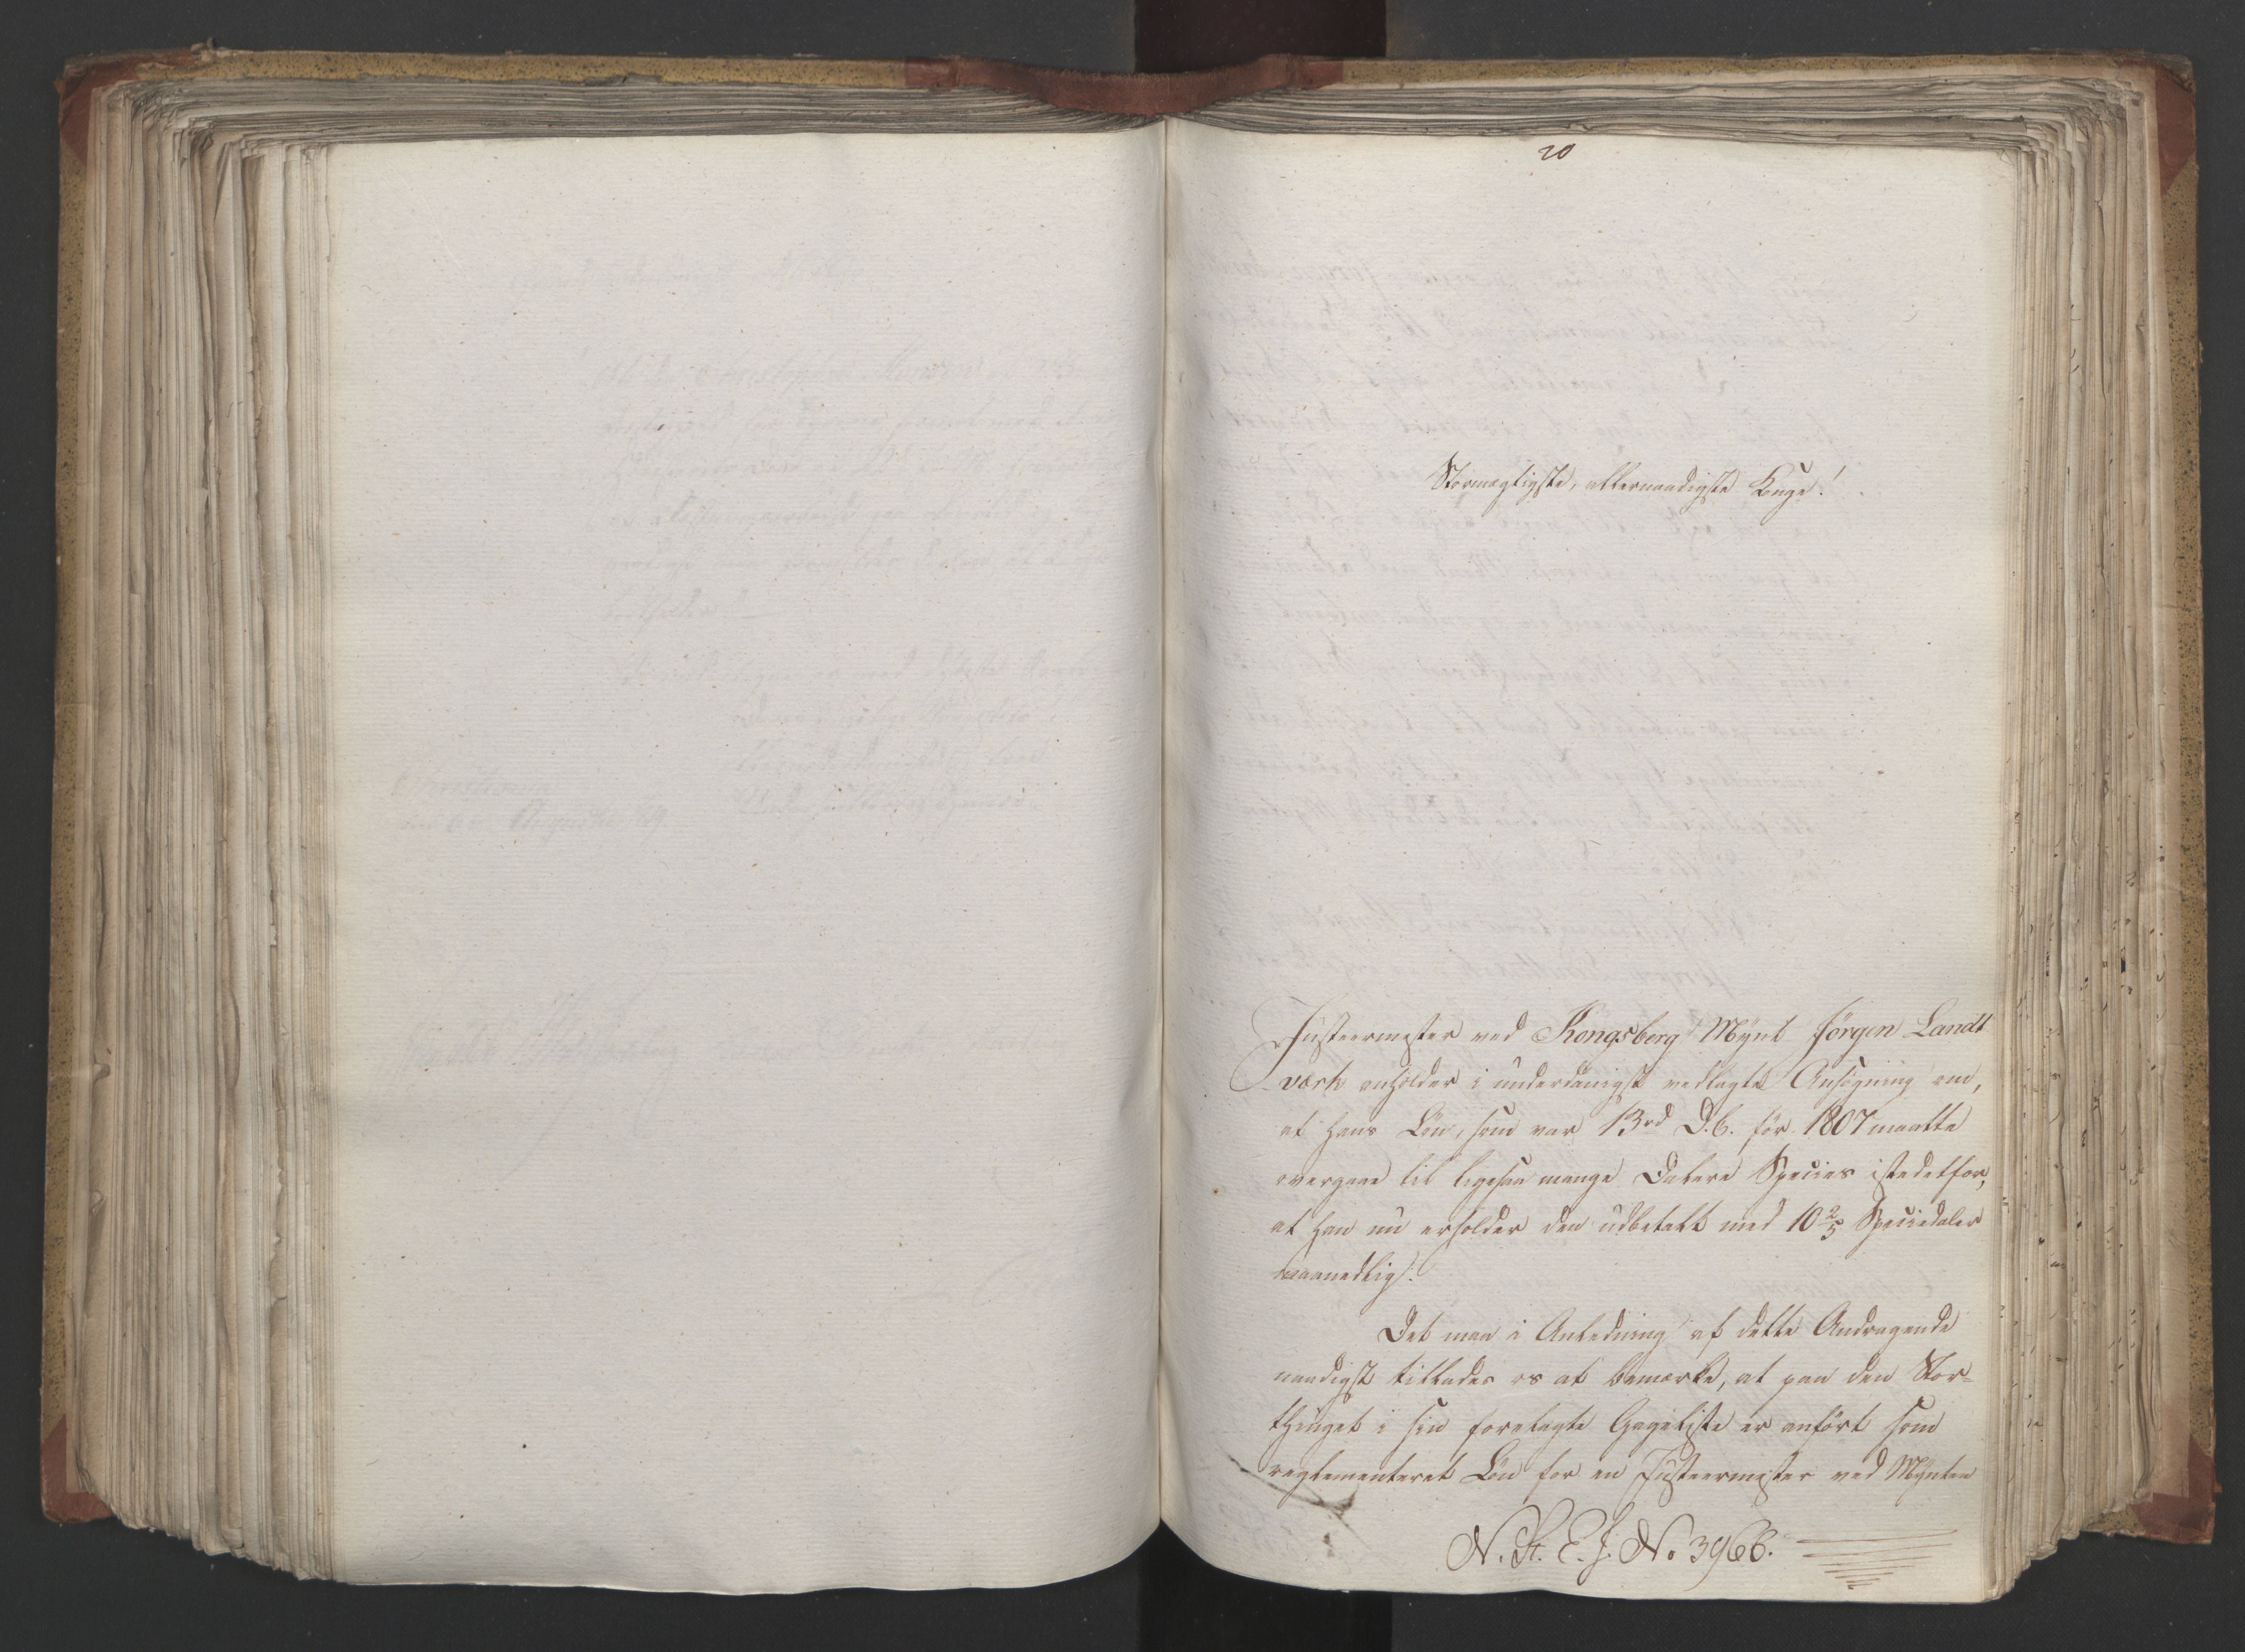 20
Stormægtigste, allernaadigste Konge!
Justeermester ved Kongsberg Mynt Jørgen Landt
værk anholder i underdanigst vedlagte Ansøgning om,
at hans Løn, som var 13rd D.C. før 1807 maatte
overgaae til ligesaa mange Dalere Species istedetfor,
at han nu erholder den udbetalt med 10 2/5 Speciedaler
maanedlig.
Det maa i Anledning af dette Andragende
naadigst tillades os at bemærke, at paa den Stor-
thinget i sin forelagte Gageliste er anført som
reglementeret Løn for en Justeermester ved Mynten
N. St. E. J. No 3966.